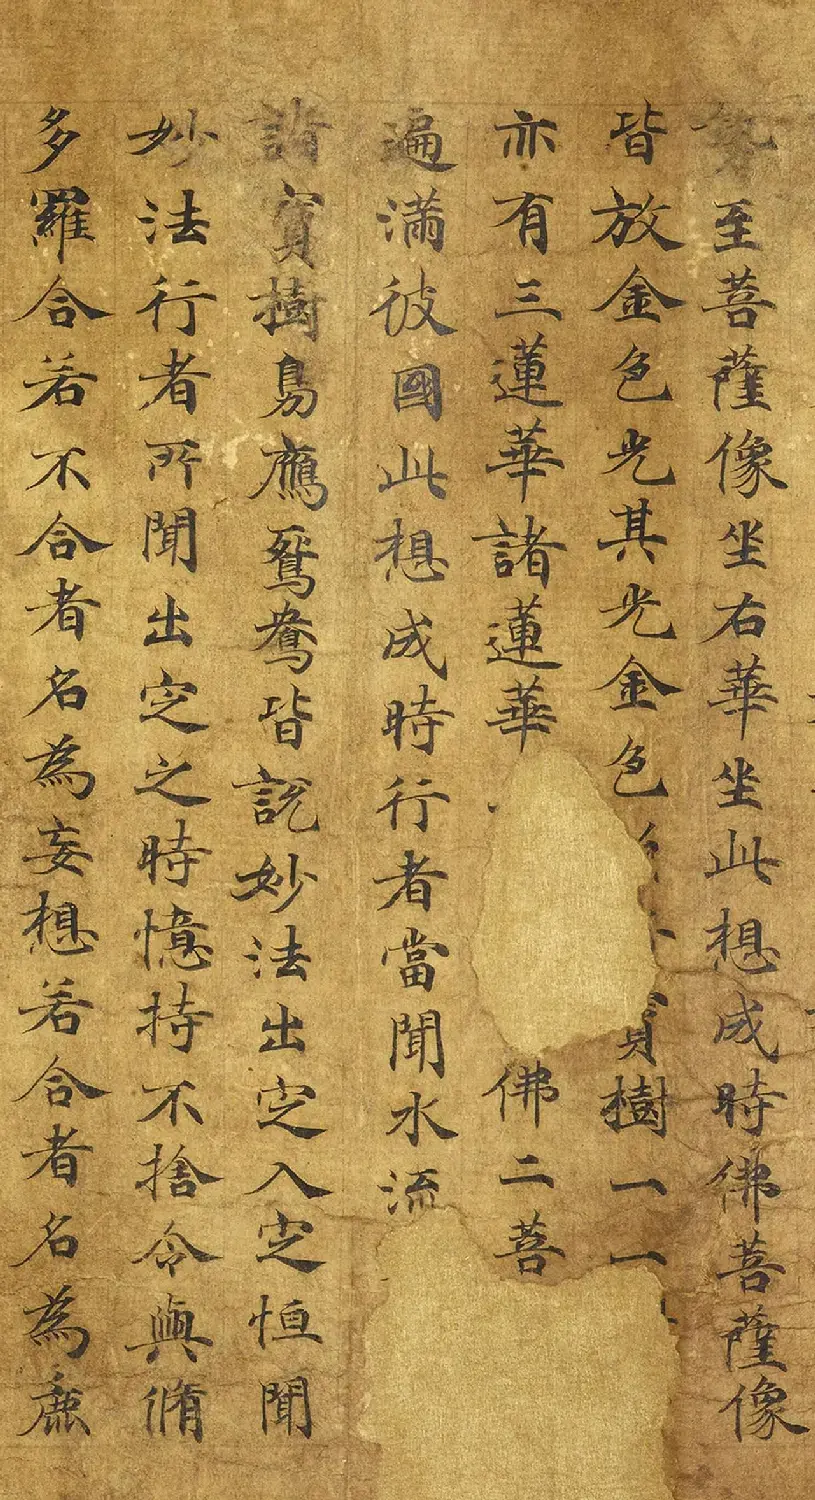 勢至菩薩像坐右華坐此想成時佛菩薩像
皆放金色光其光金色樹一一
亦有三蓮華諸蓮華佛二菩
遍滿彼國此想成時行者當聞水流
諸寶樹鳬鴈鴛鴦皆說妙法出定入定恒聞
妙法行者所聞出定之時憶持不捨令與脩
多羅合若不合者名為妄想若合者名為麁